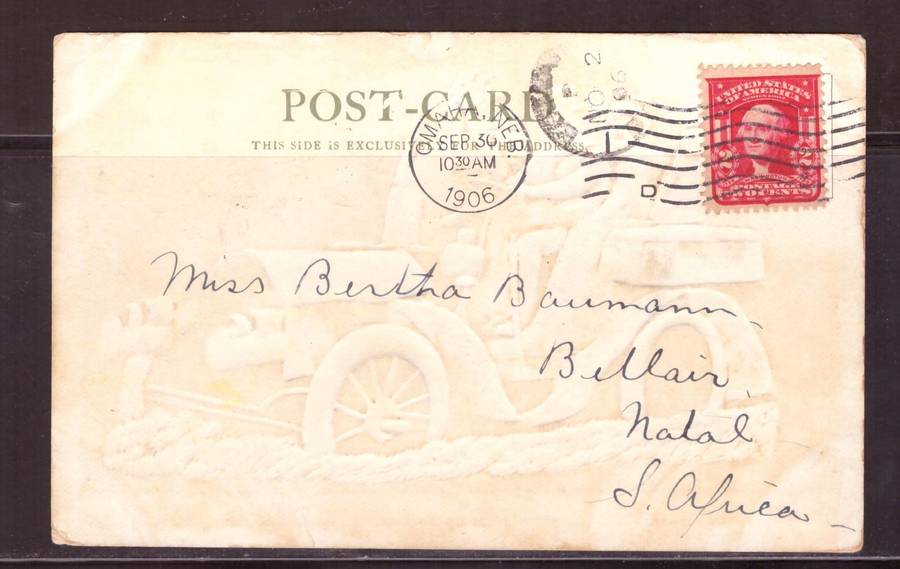 POST-CARD
THIS SIDE IS EXCLUSIVELY FOR THE ADDRESS.
OMAHA, NEB.
SEP 30
10 30 AM
1906
D
UNITED STATES
OF AMERICA
2 2
POSTAGE
TWO CENTS
Miss Bertha Baumann
Bellair
Natal
S. Africa